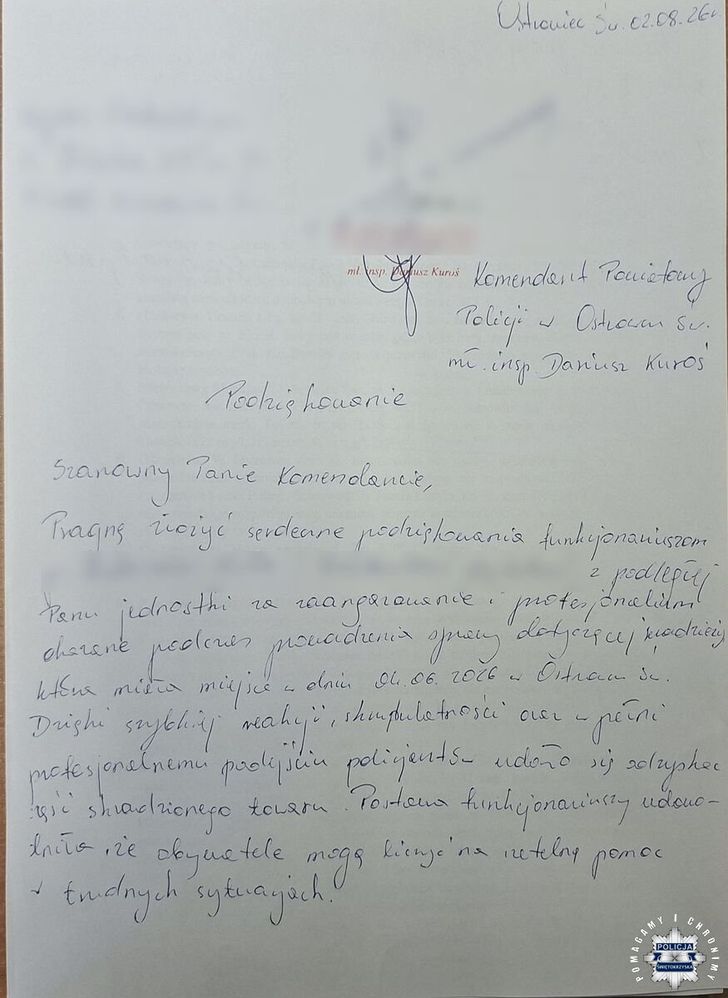 Ostrowiec Św. 02.08.26r.
mł. insp. Dariusz Kuroś
Komendant Powiatowy
Policji w Ostrowcu Św.
mł. insp. Dariusz Kuroś
Podziękowanie
Szanowny Panie Komendancie,
Pragnę złożyć serdeczne podziękowania funkcjonariuszom
z podległej
Panu jednostki za zaangażowanie i profesjonalizm
okazane podczas prowadzenia sprawy dotyczącej kradzieży
która miała miejsce w dniu 04.06.2026 w Ostrowcu Św.
Dzięki szybkiej reakcji, skrupulatności oraz w pełni
profesjonalnemu podejściu policjantów udało się odzyskać
część skradzionego towaru. Postawa funkcjonariuszy udowo-
dniła, że obywatele mogą liczyć na rzetelną pomoc
w trudnych sytuacjach.
POMAGAMY I CHRONIMY
POLICJA
ŚWIĘTOKRZYSKA